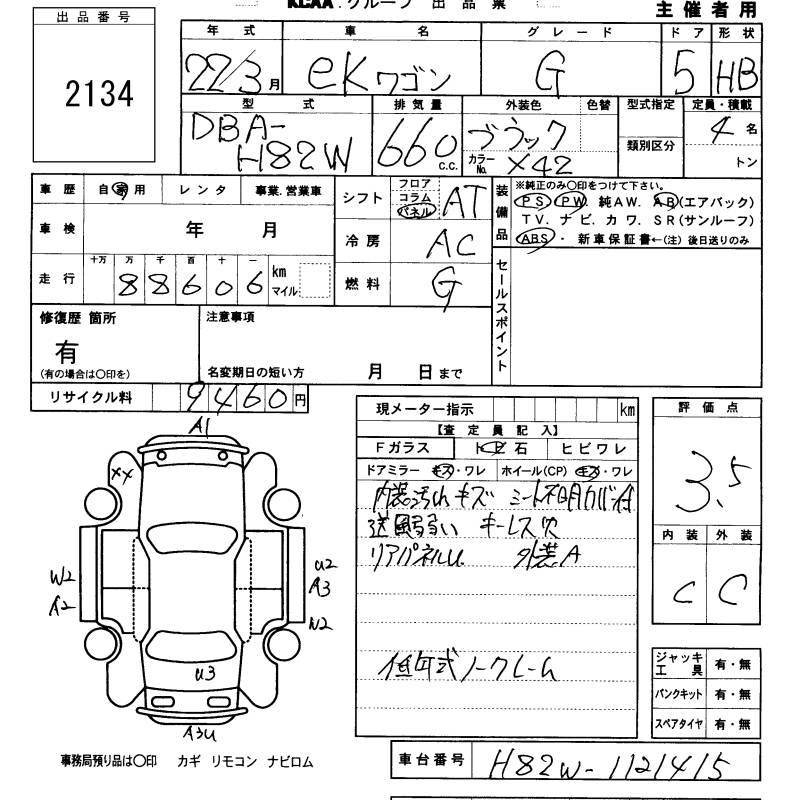 KCAA.グループ 出 品 票
主催者用
出品番号
2134
年式 車名 グレード ドア 形状
22/3月 eKワゴン G 5 HB
型式 排気量 外装色 色替 型式指定 定員・積載
DBA-H82W 660 C.C. ブラック カラーNo. X42 類別区分 4名 トン
車歴 自家用 レンタ 事業.営業車
車検 年 月
走行 十万 万 千 百 十 一
88606 km マイル
シフト フロア コラム パネル AT
冷房 AC
燃料 G
装備品 ※純正のみ○印をつけて下さい。
PS PW 純AW. AB(エアバック)
TV. ナビ. カワ. SR(サンルーフ)
ABS・ 新車保証書←(注)後日送りのみ
セールスポイント
修復歴 箇所
有
(有の場合は○印を)
注意事項
名変期日の短い方 月 日まで
リサイクル料 9460円
現メーター指示 km
【査定員記入】
Fガラス トビ石 ヒビワレ
ドアミラー キズ・ワレ ホイール(CP) キズ・ワレ
内装汚れ キズ シート不明カバー付
送風弱い キーレス欠
リアパネルU. 外装A
低年式ノークレーム
評価点
3.5
内装 外装
C C
A1
XX
W2
A2
U2
A3
W2
U3
A3U
ジャッキ工具 有・無
パンクキット 有・無
スペアタイヤ 有・無
事務局預り品は○印 カギ リモコン ナビロム
車台番号 H82W-1121415